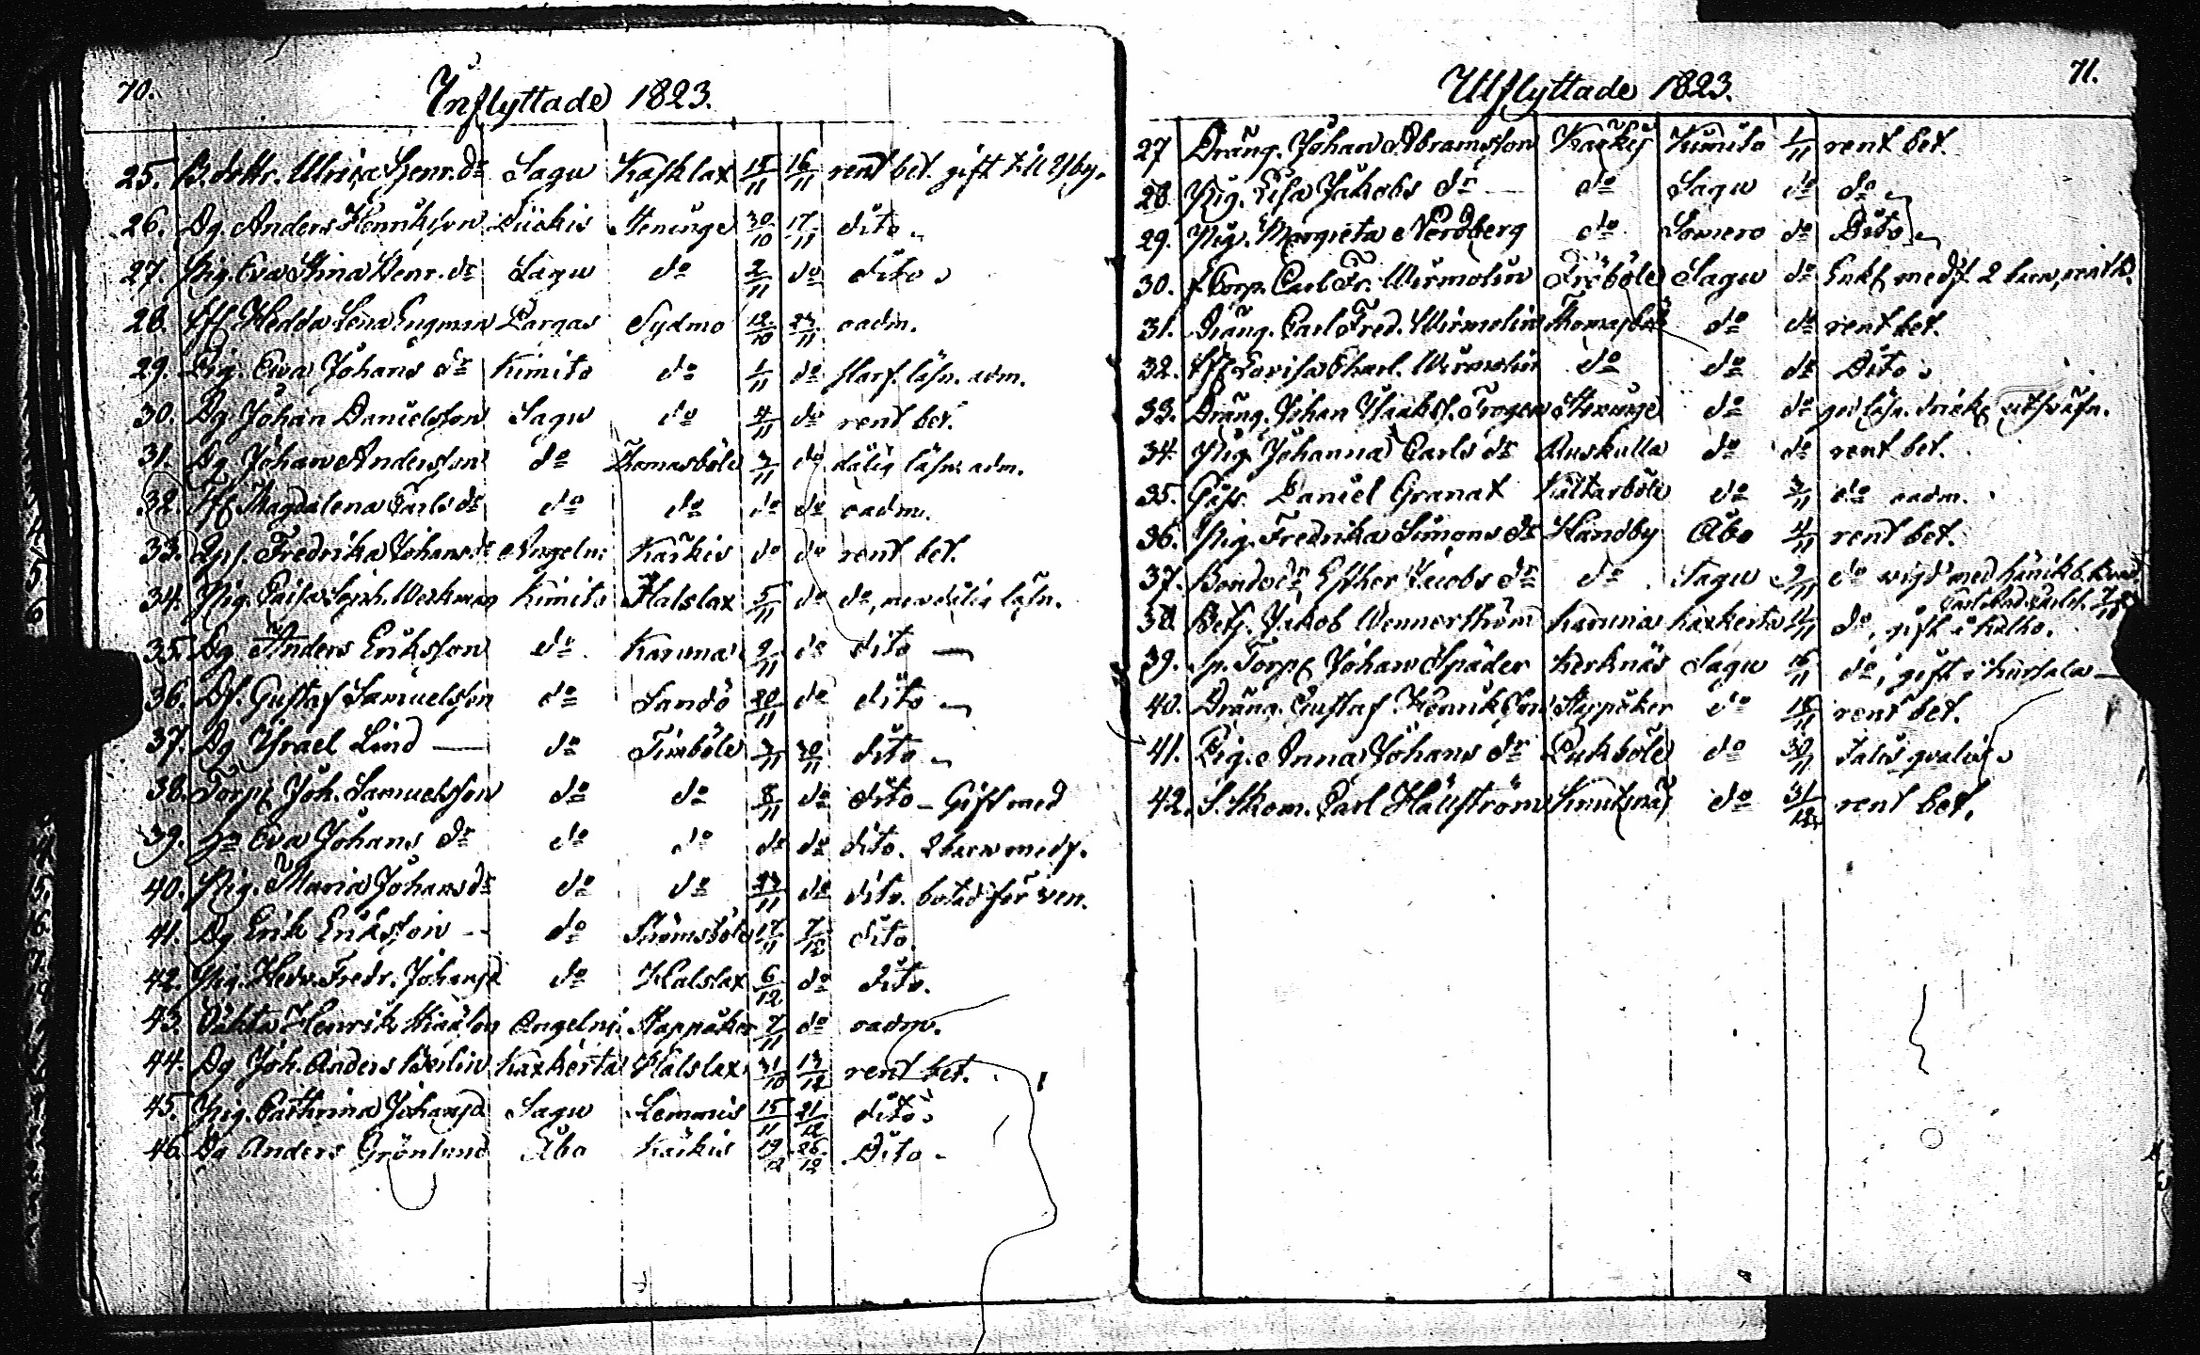 70.
Inflyttade 1823.
25. B.dottr. Ulrica Henr. dr Sagu Kasklax 15/11 16/11 rent bet. gift till Åby.
26. Dg Anders Henriksson Piikis Steninge 30/10 17/11 dito
27. Pig. Eva Stina Henr. dr Sagu do 2/11 do dito
28. Hedda Lena Engman Pargas Sydmo 12/10 23/11 oadm.
29. Pig. Ewa Johans dr Kimito do 1/11 do läsn. adm.
30. Dg Johan Danielsson Sagu do 4/11 do rent bet.
31. Dg Johan Andersson do Thomasböle 3/11 do dålig läsn. adm.
32. Magdalena Carls dr do do do do oadm.
33. Fredrika Johans dr Angelni Karkis do do rent bet.
34. Pig. Workman Kimito Halslax 5/11 do do, läsn.
35. Dg Anders Eriksson do Karuna 9/11 do dito
36. Gustaf Samuelsson do Sandö 20/11 do dito
37. Dg Israel Lind do Timböle 3/11 30/11 dito
38. Torp. Joh. Samuelsson do do 8/11 do dito - Gift med
39. Eva Johans dr do do do do dito. 2 barn medf.
40. Pig. Maria Johans dr do do 23/11 do dito. botad för ven.
41. Dg Erik Eriksson do Strömsböle 17/11 7/12 dito.
42. Pig. Hedv. Fredr. Johansd do Halslax 6/12 do dito.
43. Henrik Angelni Stappåker 7/11 do oadm.
44. Dg Joh. Anders Berlin Kaxkerta Halslax 31/10 13/12 rent bet.
45. Pig. Cathrina Johansd Sagu Lemmis 15/11 21/12 dito
46. Dg Anders Grönlund Åbo Karkis 19/12 26/12 Dito
71.
Utflyttade 1823.
27 Dräng. Johan Abramsson Karkis Kimito 1/11 rent bet.
28. Pig. Lisa Jakobs dr do Sagu do do
29. Pig. Margreta Nordberg do Somero do Dito
30. Carl Fr. Wirmolin Fröböle Sagu do Enkl. medf. 2 barn
31. Dräng. Carl Fred. Wirmolin Thomasböle do do rent bet.
32. Lovisa Charl. Wirmolin do do do Dito
33. Dräng. Johan Isaaks. Trogen Steninge do do
34. Pig. Johanna Carls dr Ruskulla do do rent bet.
35. Daniel Granat Kättarböle do 3/11 do oadm.
36. Pig. Fredrika Simons dr Handby Åbo 4/11 rent bet.
37. Bondedr Esther Jacobs dr do Sagu 9/11 do vigd med
38. Betj. Jakob Wennerström Karuna Kaxkerta 11/11 do, gift i
39. Torp. Johan Späder Kerknäs Sagu 16/11 do, gift i
40. Dräng. Gustaf Henriksson Stappåker do 18/11 rent bet.
41. Pig. Anna Johans dr Pukböle do 30/11
42. S. Skom. Carl Hällström Knutsnäs do 31/12 rent bet.